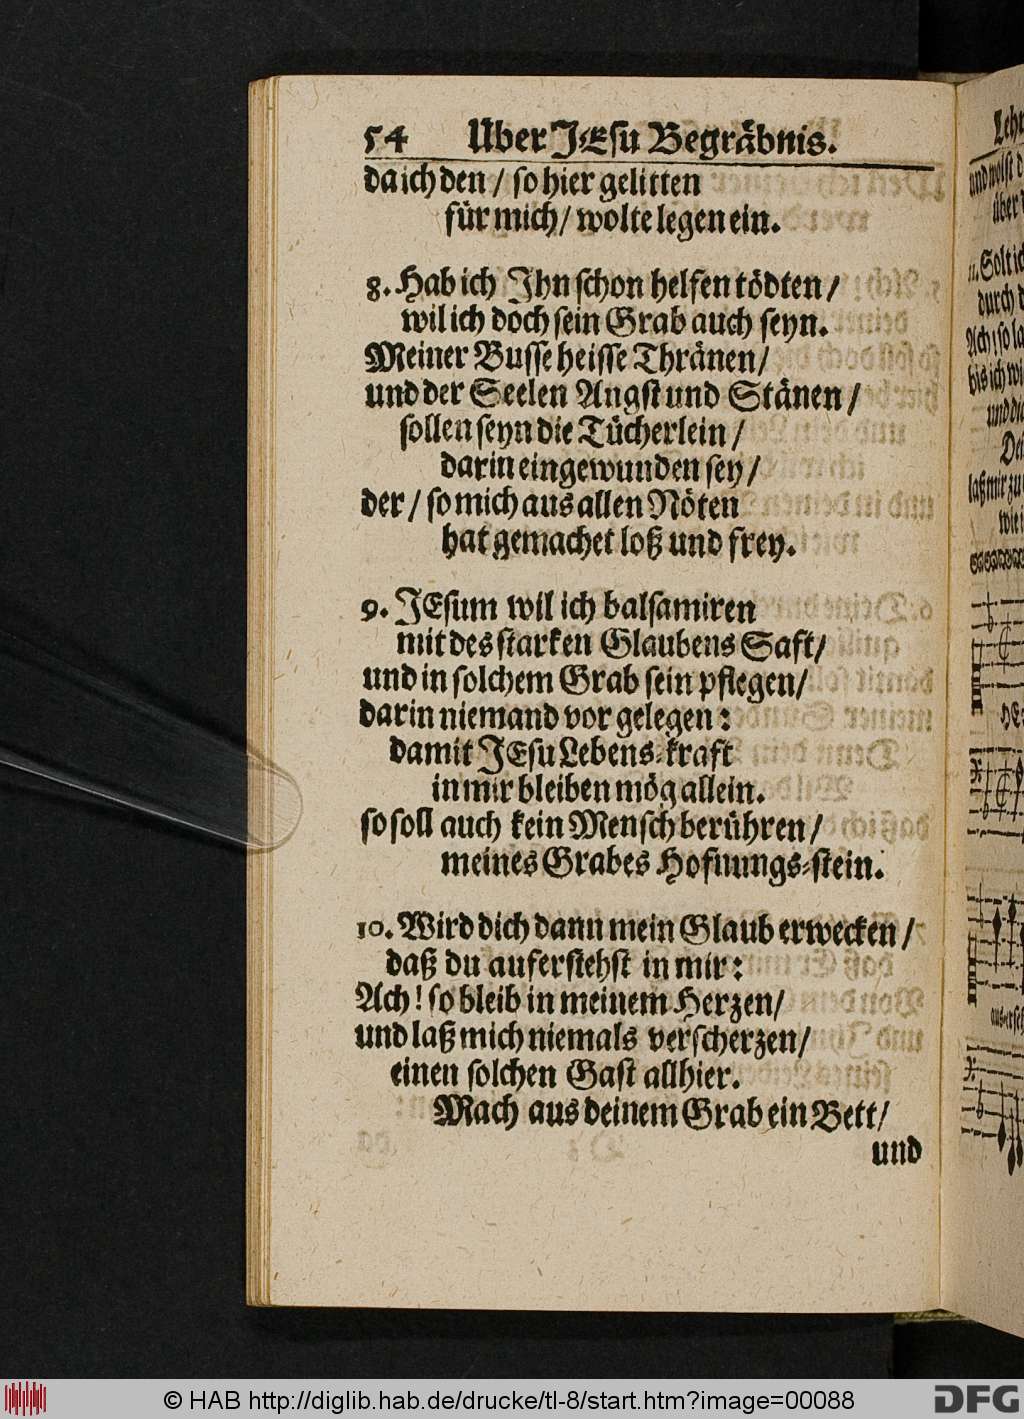 54 Uber JEsu Begräbnis.
da ich den / so hier gelitten
für mich / wolte legen ein.
8. Hab ich Ihn schon helfen tödten /
wil ich doch sein Grab auch seyn.
Meiner Busse heisse Thränen /
und der Seelen Angst und Stänen /
sollen seyn die Tücherlein /
darin eingewunden sey /
der / so mich aus allen Nöten
hat gemachet loß und frey.
9. JEsum wil ich balsamiren
mit des starken Glaubens Saft /
und in solchem Grab sein pflegen /
darin niemand vor gelegen :
damit JEsu Lebens-kraft
in mir bleiben mög allein.
so soll auch kein Mensch berühren /
meines Grabes Hofnungs-stein.
10. Wird dich dann mein Glaub erwecken /
daß du auferstehst in mir :
Ach ! so bleib in meinem Herzen /
und laß mich niemals verscherzen /
einen solchen Gast allhier.
Mach aus deinem Grab ein Bett /
und
11. Solt ich
durch d
Ach ! so la
bis ich wi
und die
laß mir zu
© HAB http://diglib.hab.de/drucke/tl-8/start.htm?image=00088
DFG